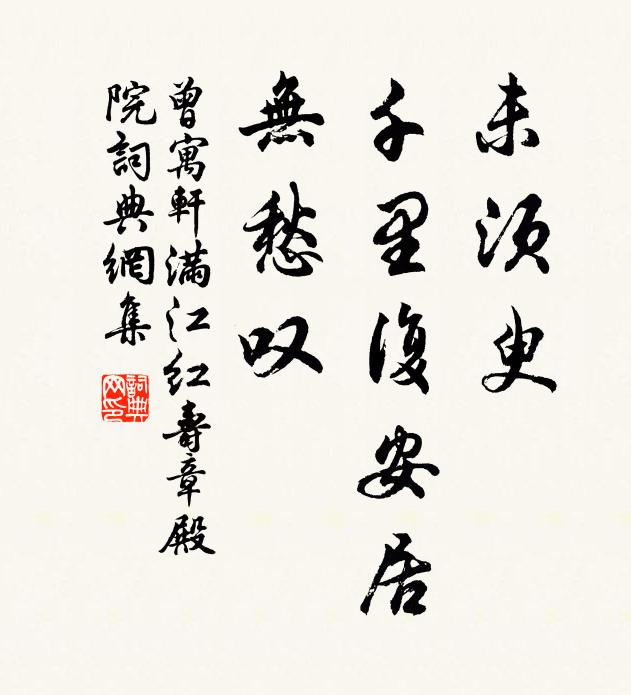 未須臾
千里復安居
無愁叹
曾寓軒滿江紅壽章殿
院詞典網集
詞典
网印